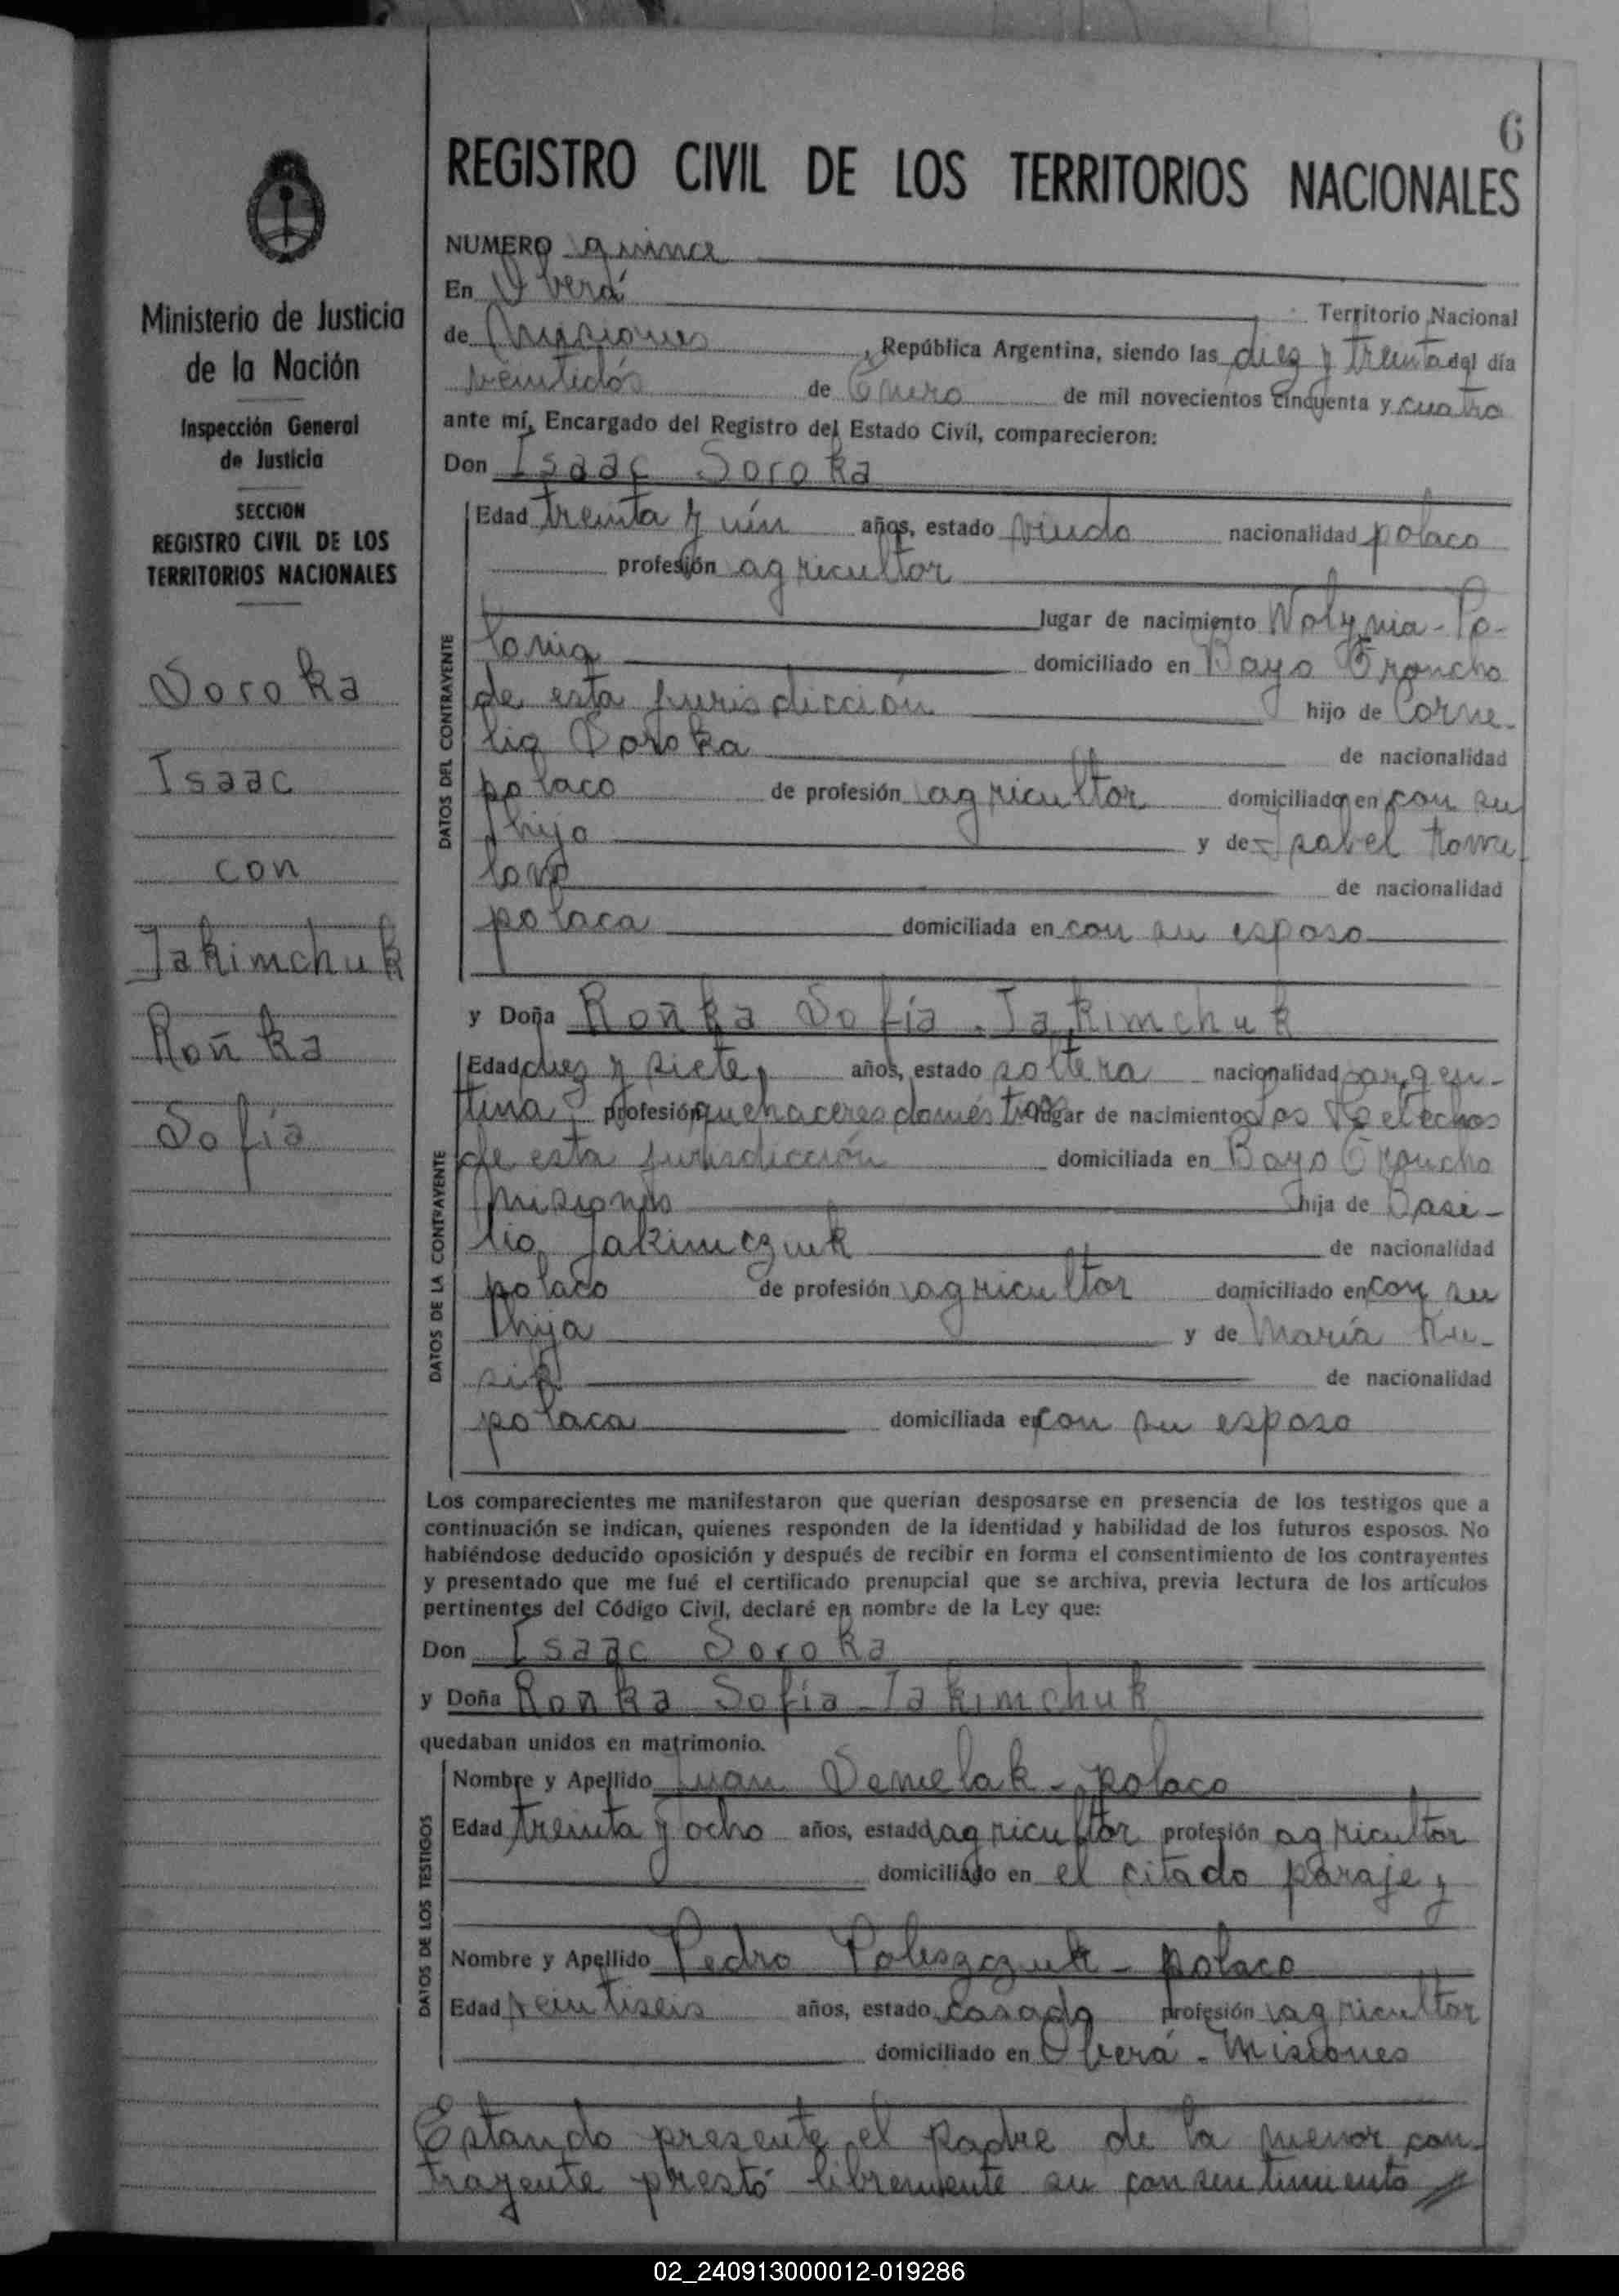 6
REGISTRO CIVIL DE LOS TERRITORIOS NACIONALES
Ministerio de Justicia
de la Nación
Inspección General
de Justicia
SECCION
REGISTRO CIVIL DE LOS
TERRITORIOS NACIONALES
Soroka
Isaac
con
Jakimchuk
Roñka
Sofía
NUMERO quince
En Oberá Territorio Nacional
de Misiones, República Argentina, siendo las diez y treinta del día
veintidós de Enero de mil novecientos cincuenta y cuatro
ante mí, Encargado del Registro del Estado Civil, comparecieron:
Don Isaac Soroka
DATOS DEL CONTRAYENTE
Edad treinta y un años, estado viudo nacionalidad polaco
profesión agricultor
lugar de nacimiento Wolynia - Po-
lonia domiciliado en Bayo Troncho
de esta jurisdicción hijo de Corne-
lio Soroka de nacionalidad
polaco de profesión agricultor domiciliado en con su
hijo y de Isabel
de nacionalidad
polaca domiciliada en con su esposo
y Doña Roñka Sofía Jakimchuk
DATOS DE LA CONTRAYENTE
Edad diez y siete años, estado soltera nacionalidad argen-
tina profesión quehaceres domésticos lugar de nacimiento Los Helechos
de esta jurisdicción domiciliada en Bayo Troncho
Misiones hija de Basi-
lio Jakimczuk de nacionalidad
polaco de profesión agricultor domiciliado en con su
hija y de María Ku-
sik de nacionalidad
polaca domiciliada en con su esposo
Los comparecientes me manifestaron que querían desposarse en presencia de los testigos que a
continuación se indican, quienes responden de la identidad y habilidad de los futuros esposos. No
habiéndose deducido oposición y después de recibir en forma el consentimiento de los contrayentes
y presentado que me fué el certificado prenupcial que se archiva, previa lectura de los artículos
pertinentes del Código Civil, declaré en nombre de la Ley que:
Don Isaac Soroka
y Doña Roñka Sofía Jakimchuk
quedaban unidos en matrimonio.
DATOS DE LOS TESTIGOS
Nombre y Apellido Juan Demelak - polaco
Edad treinta y ocho años, estado agricultor profesión agricultor
domiciliado en el citado paraje y
Nombre y Apellido Pedro Poleszczuk - polaco
Edad veintiseis años, estado casado profesión agricultor
domiciliado en Oberá - Misiones
Estando presente el padre de la menor con-
trayente prestó libremente su consentimiento
02_240913000012-019286